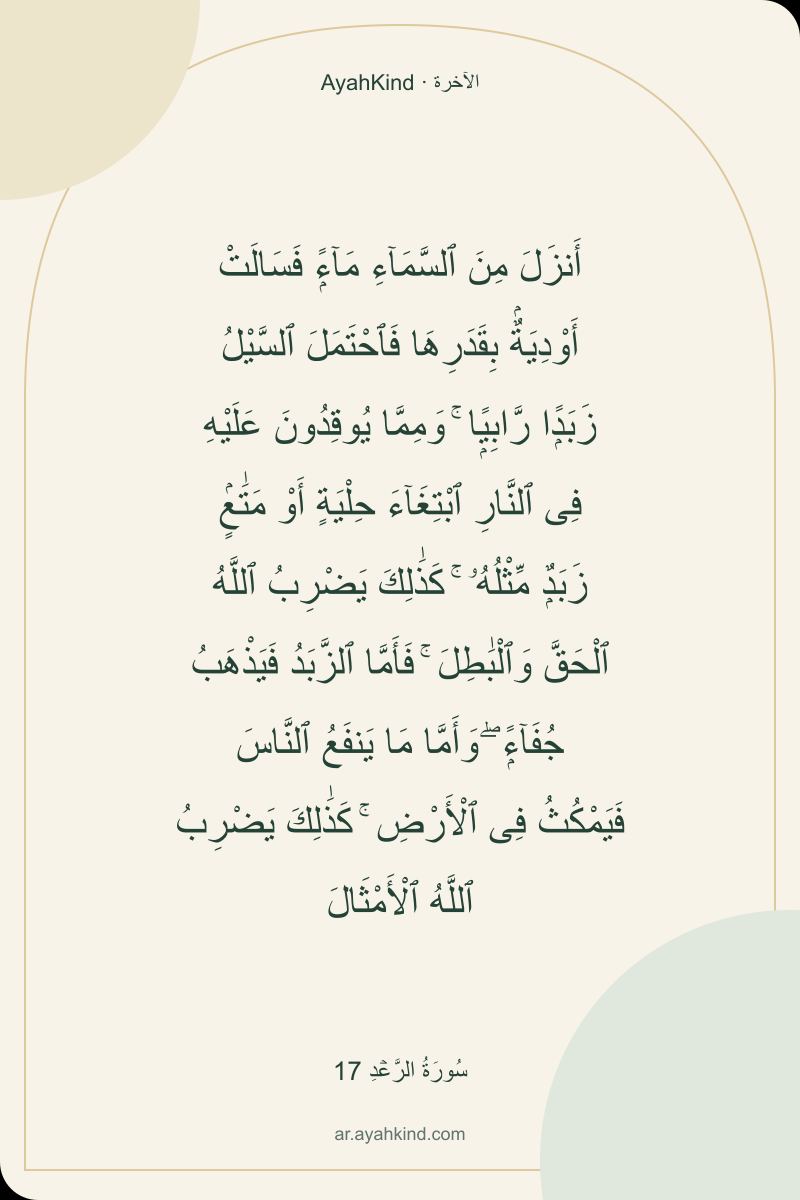 AyahKind · الآخرة
أَنزَلَ مِنَ ٱلسَّمَآءِ مَآءًۭ فَسَالَتْ
أَوْدِيَةٌۢ بِقَدَرِهَا فَٱحْتَمَلَ ٱلسَّيْلُ
زَبَدًۭا رَّابِيًۭا ۚ وَمِمَّا يُوقِدُونَ عَلَيْهِ
فِى ٱلنَّارِ ٱبْتِغَآءَ حِلْيَةٍ أَوْ مَتَٰعٍۢ
زَبَدٌۭ مِّثْلُهُۥ ۚ كَذَٰلِكَ يَضْرِبُ ٱللَّهُ
ٱلْحَقَّ وَٱلْبَٰطِلَ ۚ فَأَمَّا ٱلزَّبَدُ فَيَذْهَبُ
جُفَآءًۭ ۖ وَأَمَّا مَا يَنفَعُ ٱلنَّاسَ
فَيَمْكُثُ فِى ٱلْأَرْضِ ۚ كَذَٰلِكَ يَضْرِبُ
ٱللَّهُ ٱلْأَمْثَالَ
سُورَةُ الرَّعۡدِ 17
ar.ayahkind.com